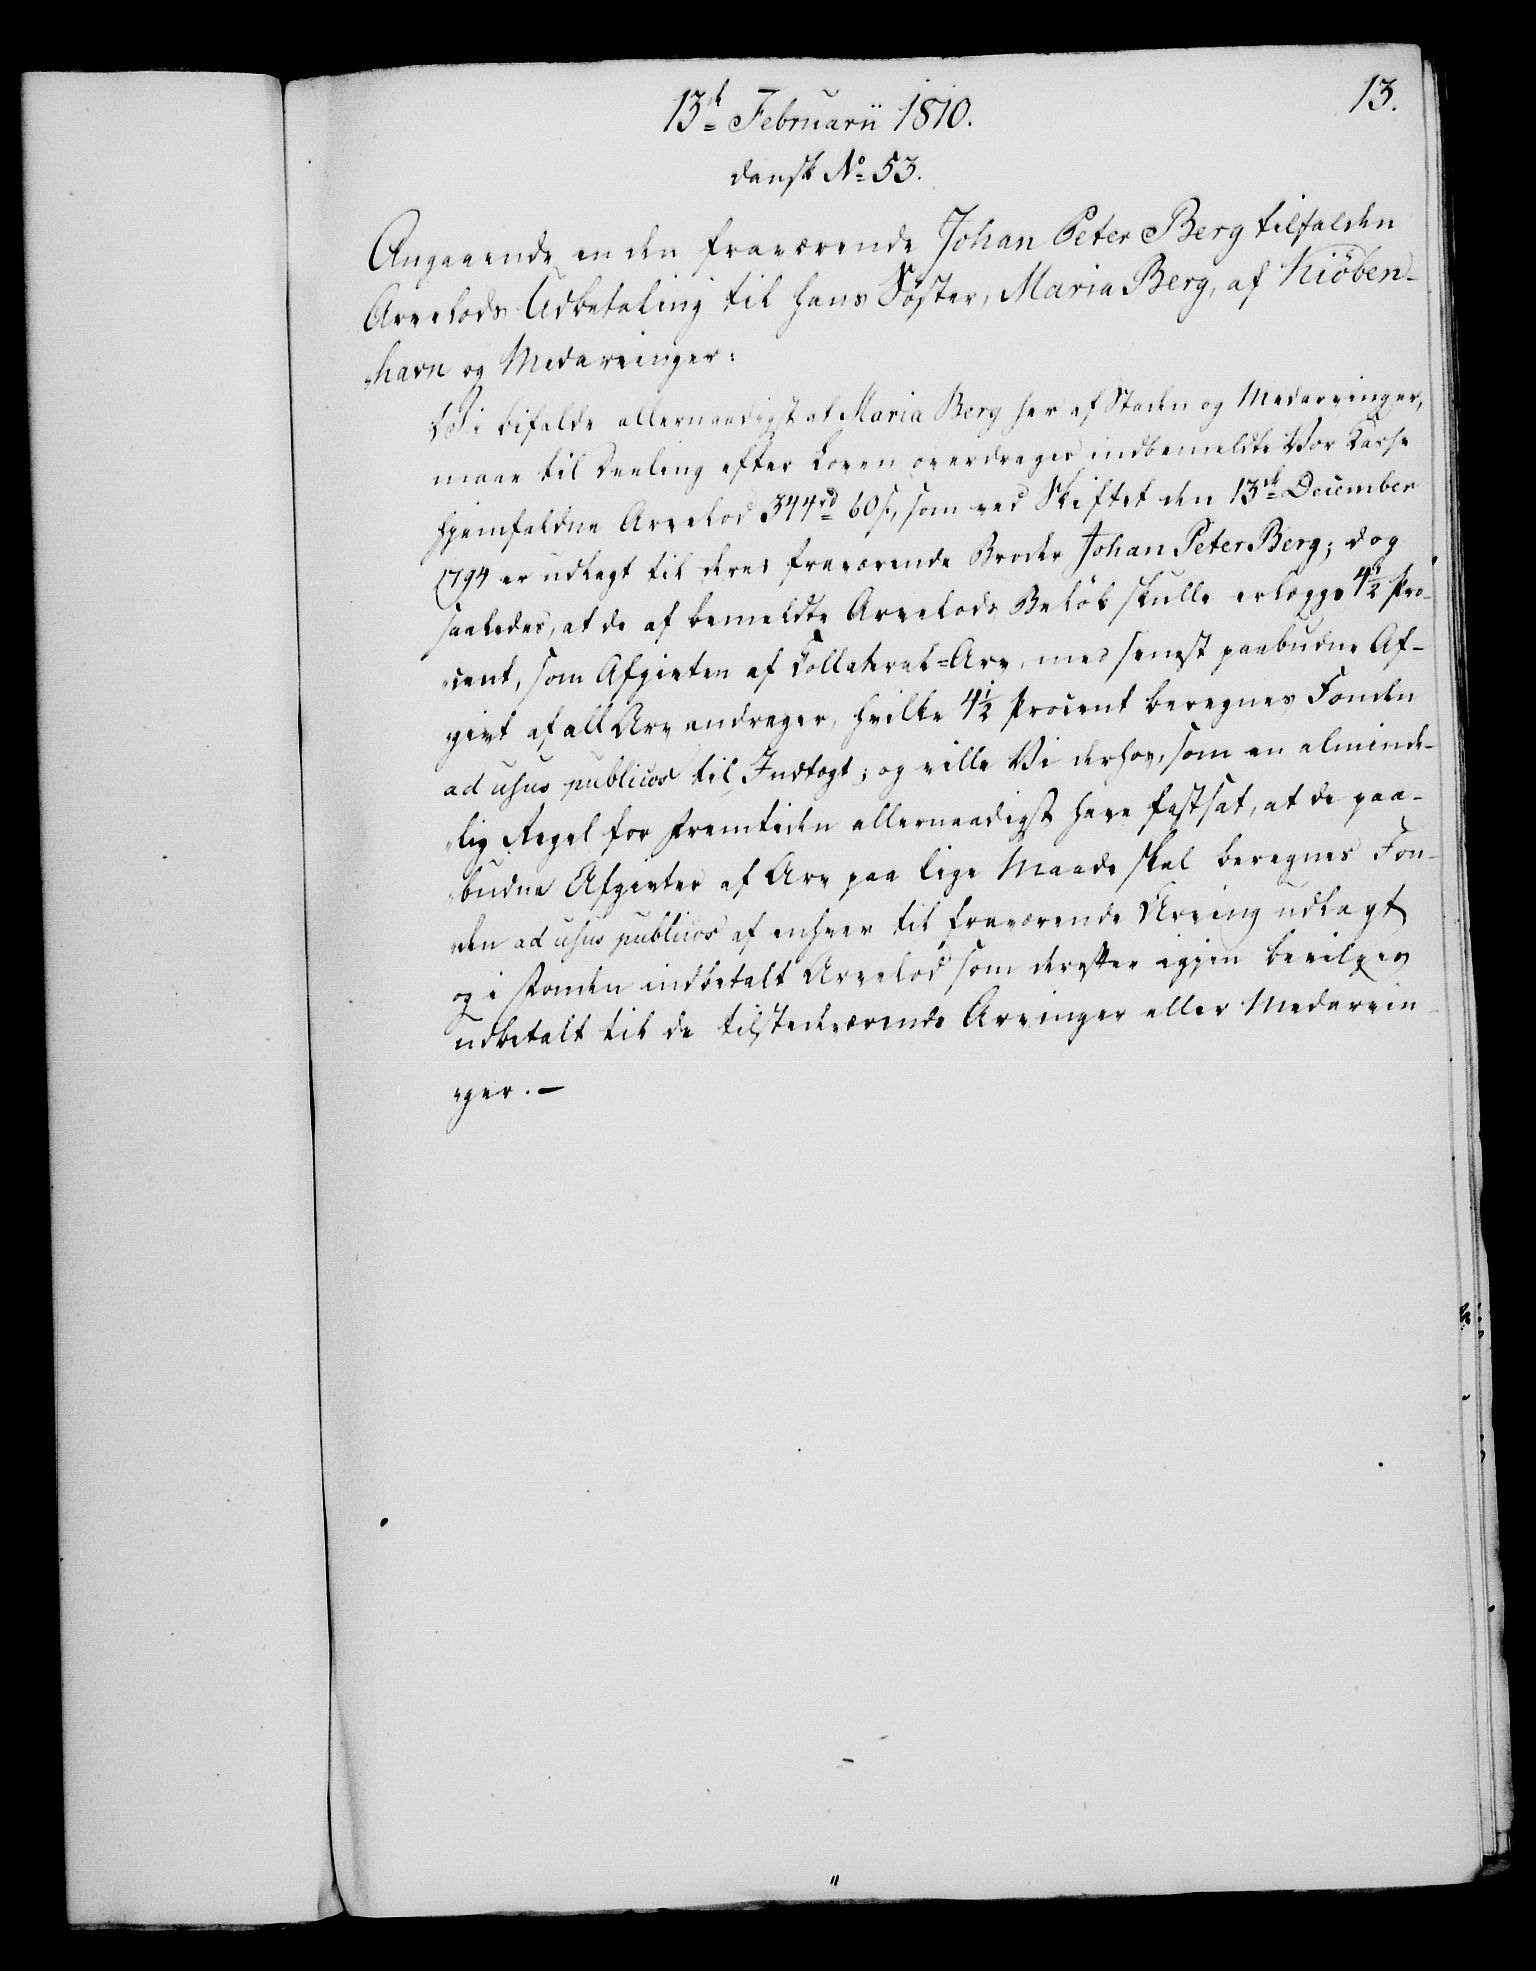 13.
13de Februarii 1810.
dansk No 53.
Angaaende en den fraværende Johan Peter Berg tilfalden
Arvelods Udbetaling til hans Söster, Maria Berg, af Kiöben-
havn og Medarvinger:
Vi bifalde allernaadigst at Maria Berg her af Staden og Medarvinger,
maae til Deeling efter Loven overdrages indbemeldte Vor Casse
hjemfaldne Arvelod 344rd 60s, som ved Skiftet den 13de December
1794 er udlagt til deres fraværende Broder Johan Peter Berg; dog
saaledes, at de af bemeldte Arvelods Belöb skulle erlægge 4½ Pro-
cent, som Afgivten af Collateral=Arv, med senest paabudne Af-
givt af all Arv andrager, hvilke 4½ Procent beregnes Fonden
ad usus publicos til Indtægt; og ville Vi derhos, som en alminde-
lig Regel for Fremtiden allernaadigst have fastsat, at de paa-
budne Afgivter af Arv paa lige Maade skal beregnes Fon-
den ad usus publicos af enhver til fraværende Arving udlagt
og i Fonden indbetalt Arvelod som derefter igjen bevilges
udbetalt til de tilstedeværende Arvinger eller Medarvin-
ger. —